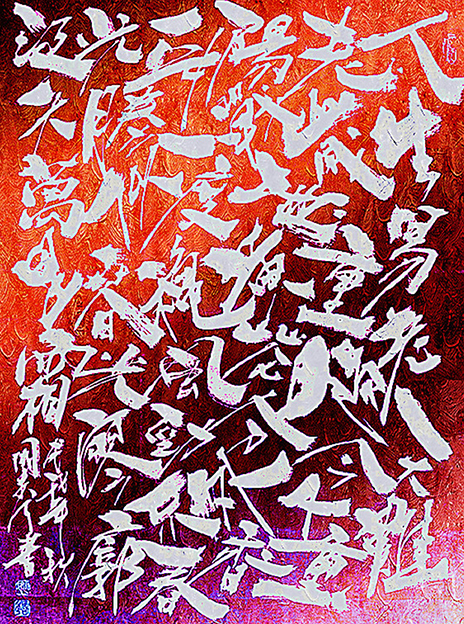 人生易老天難
老歲々重陽今又重
陽戰地黃花分外香
一年一度秋風勁不似春
光勝似春光寥廓
江天萬里霜